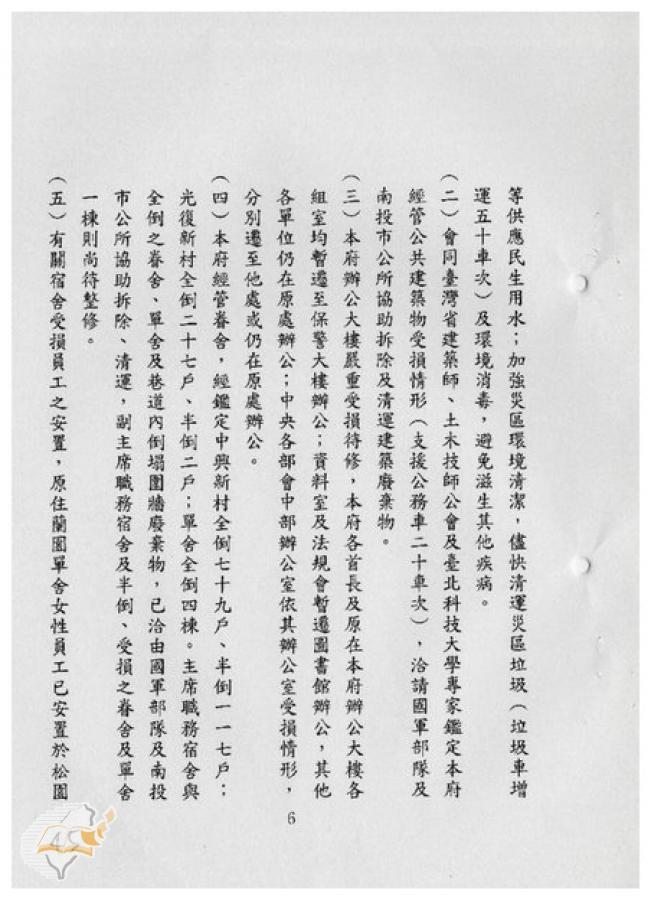 等供應民生用水；加強災區環境清潔，儘快清運災區垃圾（垃圾車增
運五十車次）及環境消毒，避免滋生其他疾病。
（二）會同臺灣省建築師、土木技師公會及臺北科技大學專家鑑定本府
經管公共建築物受損情形（支援公務車二十車次），洽請國軍部隊及
南投市公所協助拆除及清運建築廢棄物。
（三）本府辦公大樓嚴重受損待修，本府各首長及原在本府辦公大樓各
組室均暫遷至保警大樓辦公；資料室及法規會暫遷圖書館辦公，其他
各單位仍在原處辦公；中央各部會中部辦公室依其辦公室受損情形，
分別遷至他處或仍在原處辦公。
（四）本府經管眷舍，經鑑定中興新村全倒七十九戶、半倒一一七戶；
光復新村全倒二十七戶、半倒二戶；單舍全倒四棟。主席職務宿舍與
全倒之眷舍、單舍及巷道內倒塌圍牆廢棄物，已洽由國軍部隊及南投
市公所協助拆除、清運，副主席職務宿舍及半倒、受損之眷舍及單舍
一棟則尚待整修。
（五）有關宿舍受損員工之安置，原住蘭園單舍女性員工已安置於松園
6